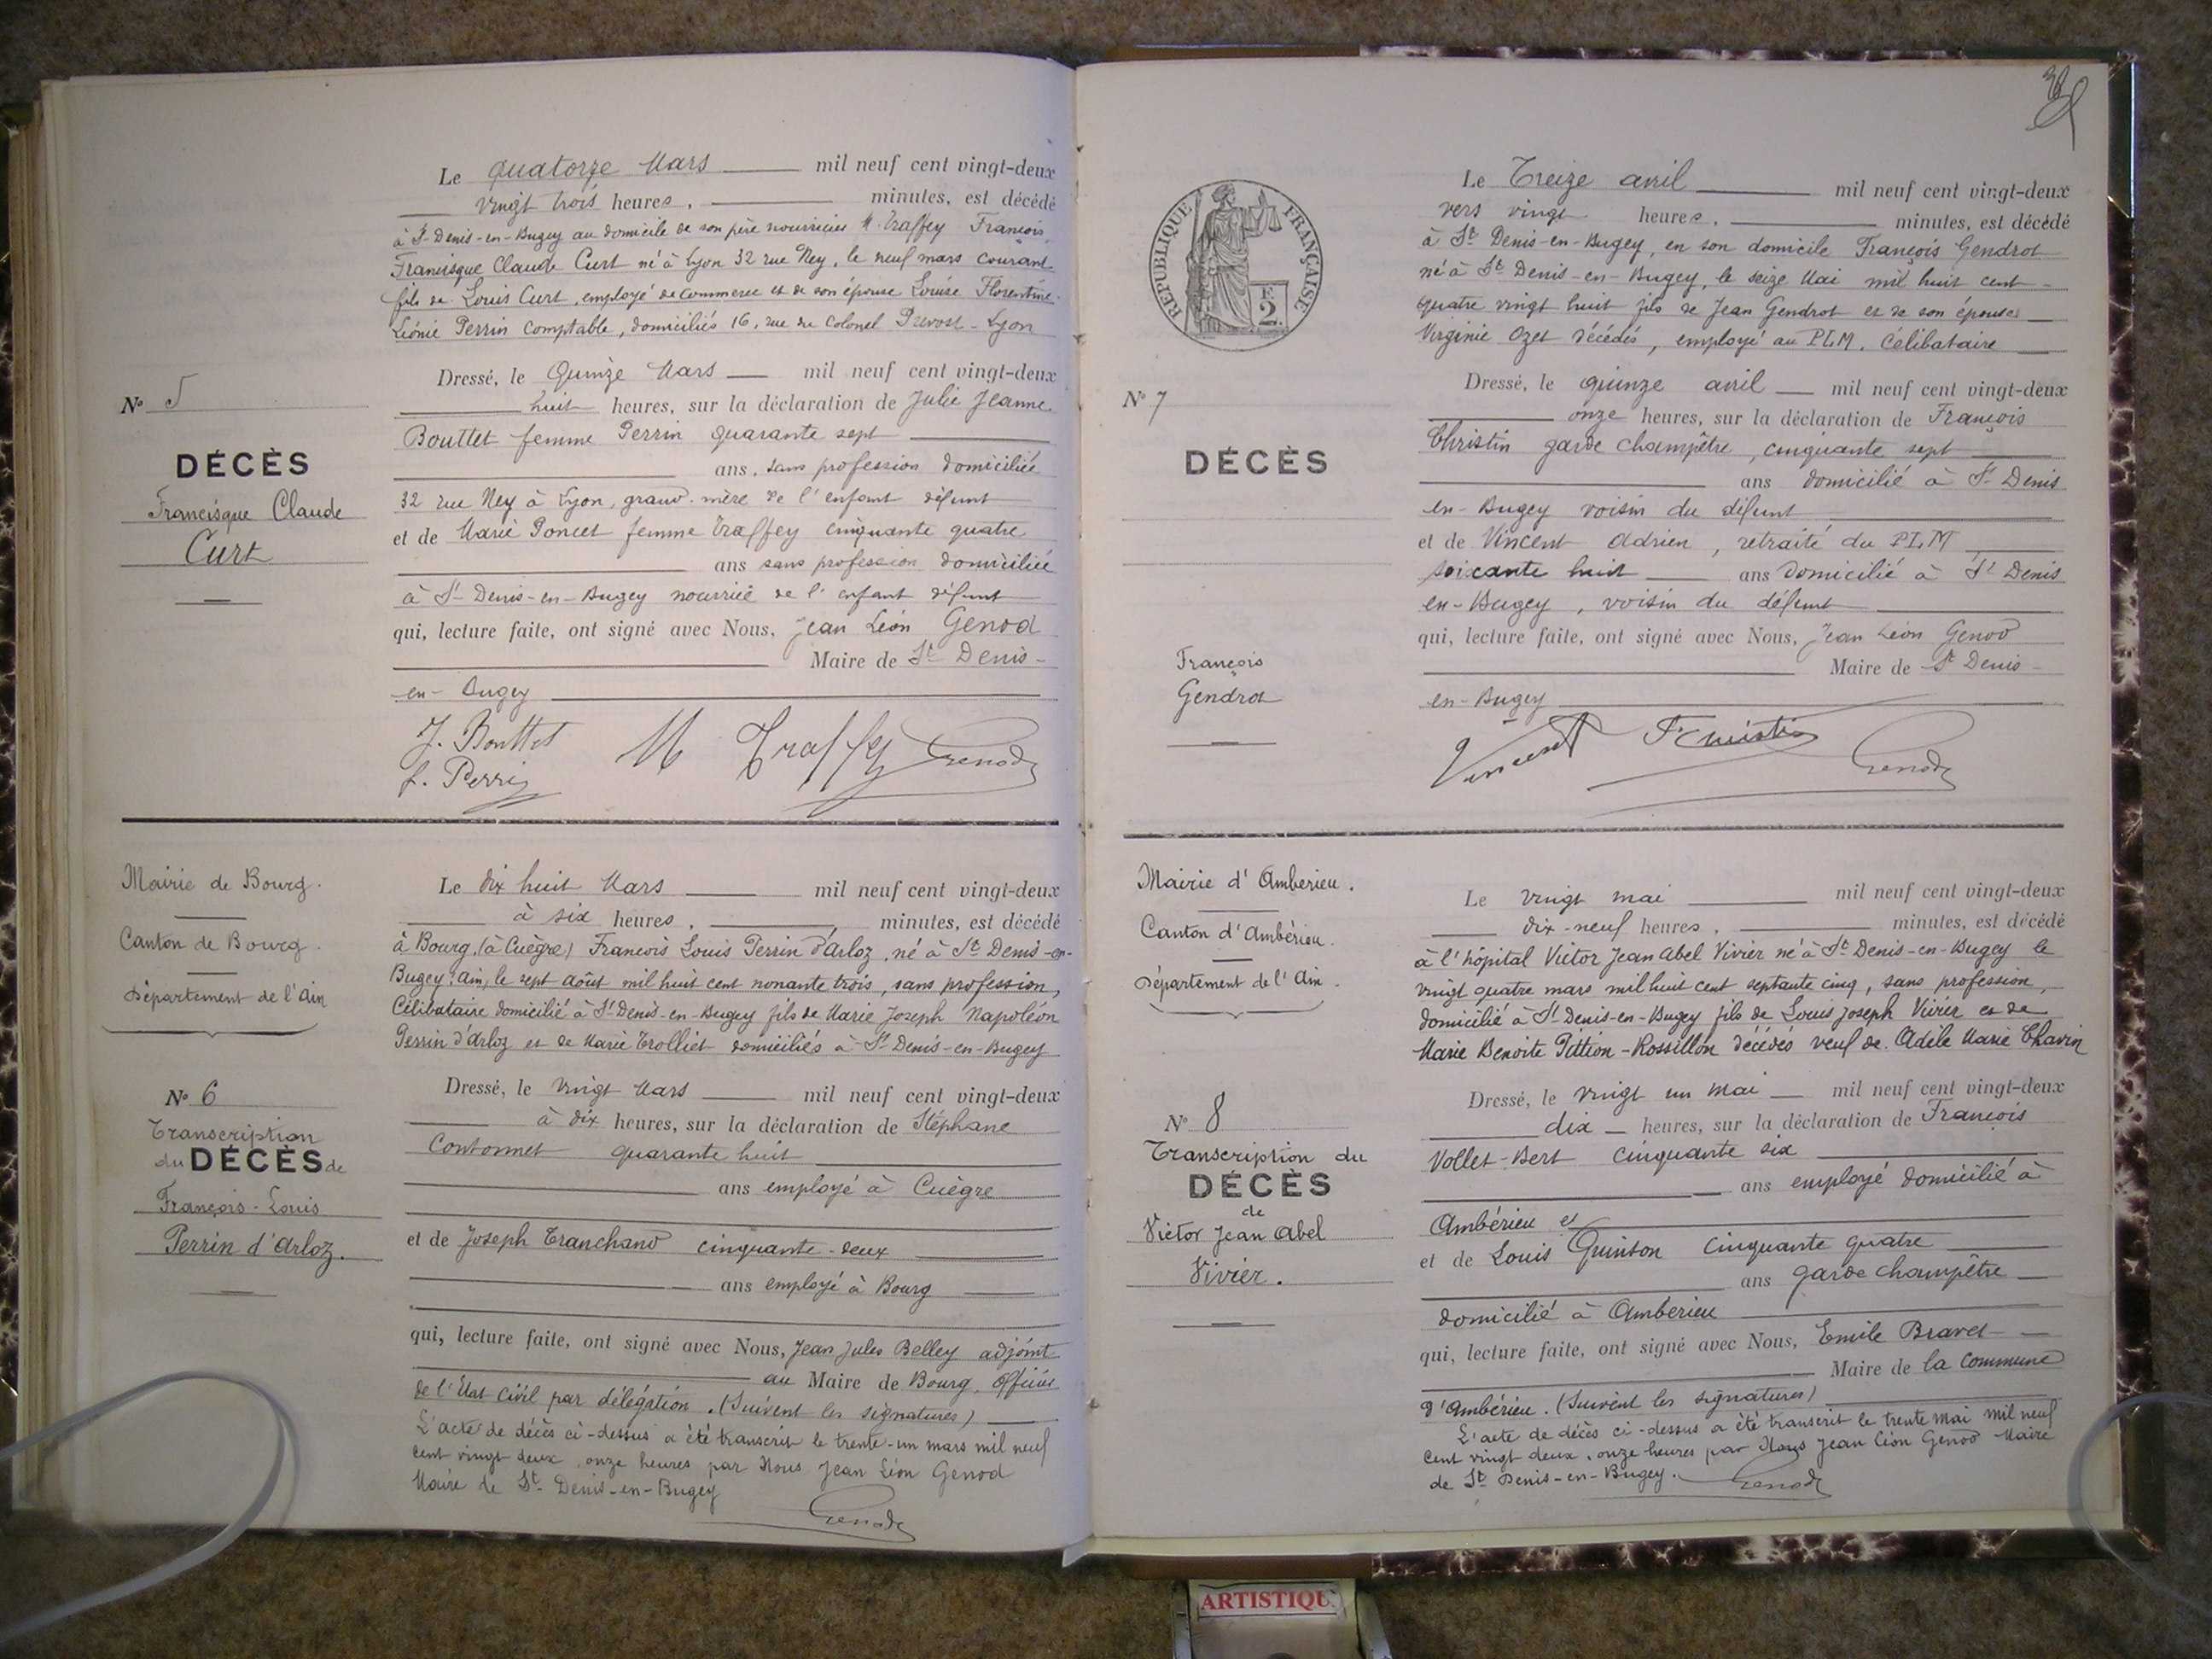 Le quatorze Mars mil neuf cent vingt-deux
vingt trois heures, minutes, est décédé
à St Denis-en-Bugey au domicile de son père nourricier M. Traffey François
Francisque Claude Curt né à Lyon 32 rue Ney, le neuf mars courant
fils de Louis Curt, employé de commerce et de son épouse Louise Florentine
Léonie Perrin comptable, domiciliés 16, rue du Colonel Prevost - Lyon
N° 5
DÉCÈS
Francisque Claude
Curt
Dressé, le Quinze Mars mil neuf cent vingt-deux
huit heures, sur la déclaration de Julie Jeanne
Bouttet femme Perrin quarante sept
ans, sans profession domiciliée
32 rue Ney à Lyon, grand-mère de l'enfant défunt
et de Marie Poncet femme Traffey cinquante quatre
ans sans profession domiciliée
à St Denis-en-Bugey nourrice de l'enfant défunt
qui, lecture faite, ont signé avec Nous, Jean Léon Genod
Maire de St Denis-
en-Bugey
J. Bouttet
f. Perrin
M Traffey
Genod
Mairie de Bourg.
Canton de Bourg.
Département de l'Ain
N° 6
Transcription
du DÉCÈS de
François-Louis
Perrin d'Arloz.
Le dix huit Mars mil neuf cent vingt-deux
à six heures, minutes, est décédé
à Bourg (à Cuègre) François Louis Perrin d'Arloz, né à St Denis-en-
Bugey, Ain, le sept Août mil huit cent nonante trois, sans profession,
Célibataire domicilié à St Denis-en-Bugey fils de Marie Joseph Napoléon
Perrin d'Arloz et de Marie Trolliet domiciliés à St Denis-en-Bugey
Dressé, le vingt Mars mil neuf cent vingt-deux
à dix heures, sur la déclaration de Stéphane
Contonnet quarante huit
ans employé à Cuègre
et de Joseph Tranchand cinquante-deux
ans employé à Bourg
qui, lecture faite, ont signé avec Nous, Jean Jules Belley adjoint
au Maire de Bourg, Officier
de l'Etat Civil par délégation. (Suivent les signatures)
L'acte de décès ci-dessus a été transcrit le trente-un mars mil neuf
cent vingt deux, onze heures par Nous Jean Léon Genod
Maire de St Denis-en-Bugey
Genod
RÉPUBLIQUE FRANÇAISE
F.
2
Le Treize avril mil neuf cent vingt-deux
vers vingt heures, minutes, est décédé
à St Denis-en-Bugey, en son domicile François Gendrot
né à St Denis-en-Bugey, le seize Mai mil huit cent
quatre vingt huit fils de Jean Gendrot et de son épouse
Virginie Ozet décédés, employé au PLM. Célibataire
N° 7
DÉCÈS
François
Gendrot
Dressé, le quinze avril mil neuf cent vingt-deux
onze heures, sur la déclaration de François
Christin garde champêtre, cinquante sept
ans domicilié à St Denis
en-Bugey voisin du défunt
et de Vincent Adrien, retraité du PLM
soixante huit ans domicilié à St Denis
en-Bugey, voisin du défunt
qui, lecture faite, ont signé avec Nous, Jean Léon Genod
Maire de St Denis-
en-Bugey
Vincent
F Christin
Genod
Mairie d'Ambérieu.
Canton d'Ambérieu.
Département de l'Ain.
N° 8
Transcription du
DÉCÈS
de
Victor Jean Abel
Vivier.
Le vingt mai mil neuf cent vingt-deux
dix-neuf heures, minutes, est décédé
à l'hôpital Victor Jean Abel Vivier né à St Denis-en-Bugey le
vingt quatre mars mil huit cent septante cinq, sans profession,
domicilié à St Denis-en-Bugey fils de Louis Joseph Vivier et de
Marie Benoite Pittion-Rossillon décédés veuf de Adèle Marie Chavin
Dressé, le vingt un mai mil neuf cent vingt-deux
dix heures, sur la déclaration de François
Vollet-Bert cinquante six
ans employé domicilié à
Ambérieu et
et de Louis Quinson cinquante quatre
ans garde champêtre
domicilié à Ambérieu
qui, lecture faite, ont signé avec Nous, Emile Bravet
Maire de la Commune
d'Ambérieu. (Suivent les signatures)
L'acte de décès ci-dessus a été transcrit le trente mai mil neuf
cent vingt deux, onze heures par Nous Jean Léon Genod Maire
de St Denis-en-Bugey.
Genod
ARTISTIQU